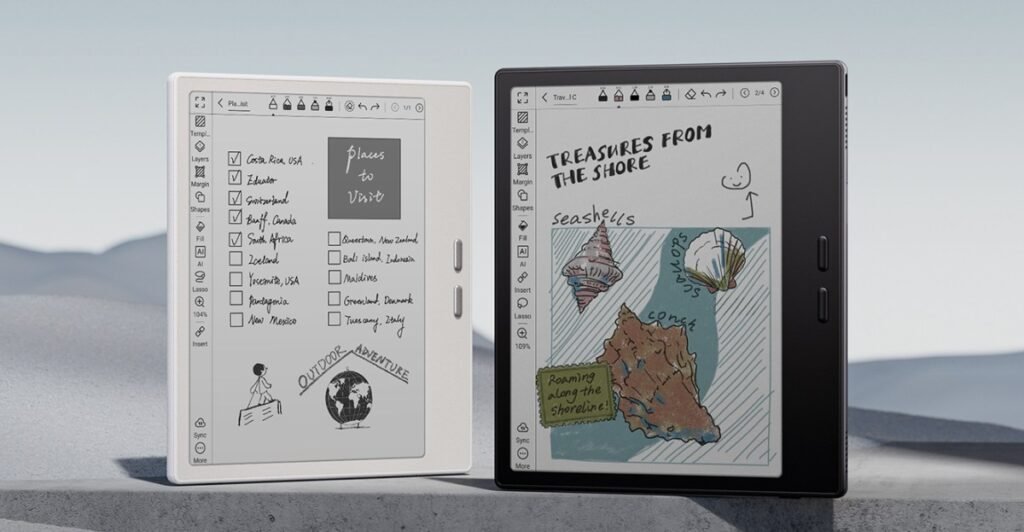 Pla...isit
1/1
Templ...
Layers
Margin
Shapes
Fill
AI
AI
Lasso
104%
Insert
Sync
More
Costa Rica, USA
Switzerland
Banff, Canada
South Africa
Iceland
Yosemite, USA
Pantagonia
New Mexico
places
to
visit
Queentown, New Zealand
Bali island, Indonesia
Maldives
Greenland, Denmark
Tuscany, Italy
OUTDOOR ADVENTURE
Trav...l C
2/4
Templ...
Layers
Margin
Shapes
Fill
AI
AI
Insert
Lasso
109%
Sync
More
TREASURES FROM
THE SHORE
seashells
scallops
conch
Roaming
along the
shoreline!